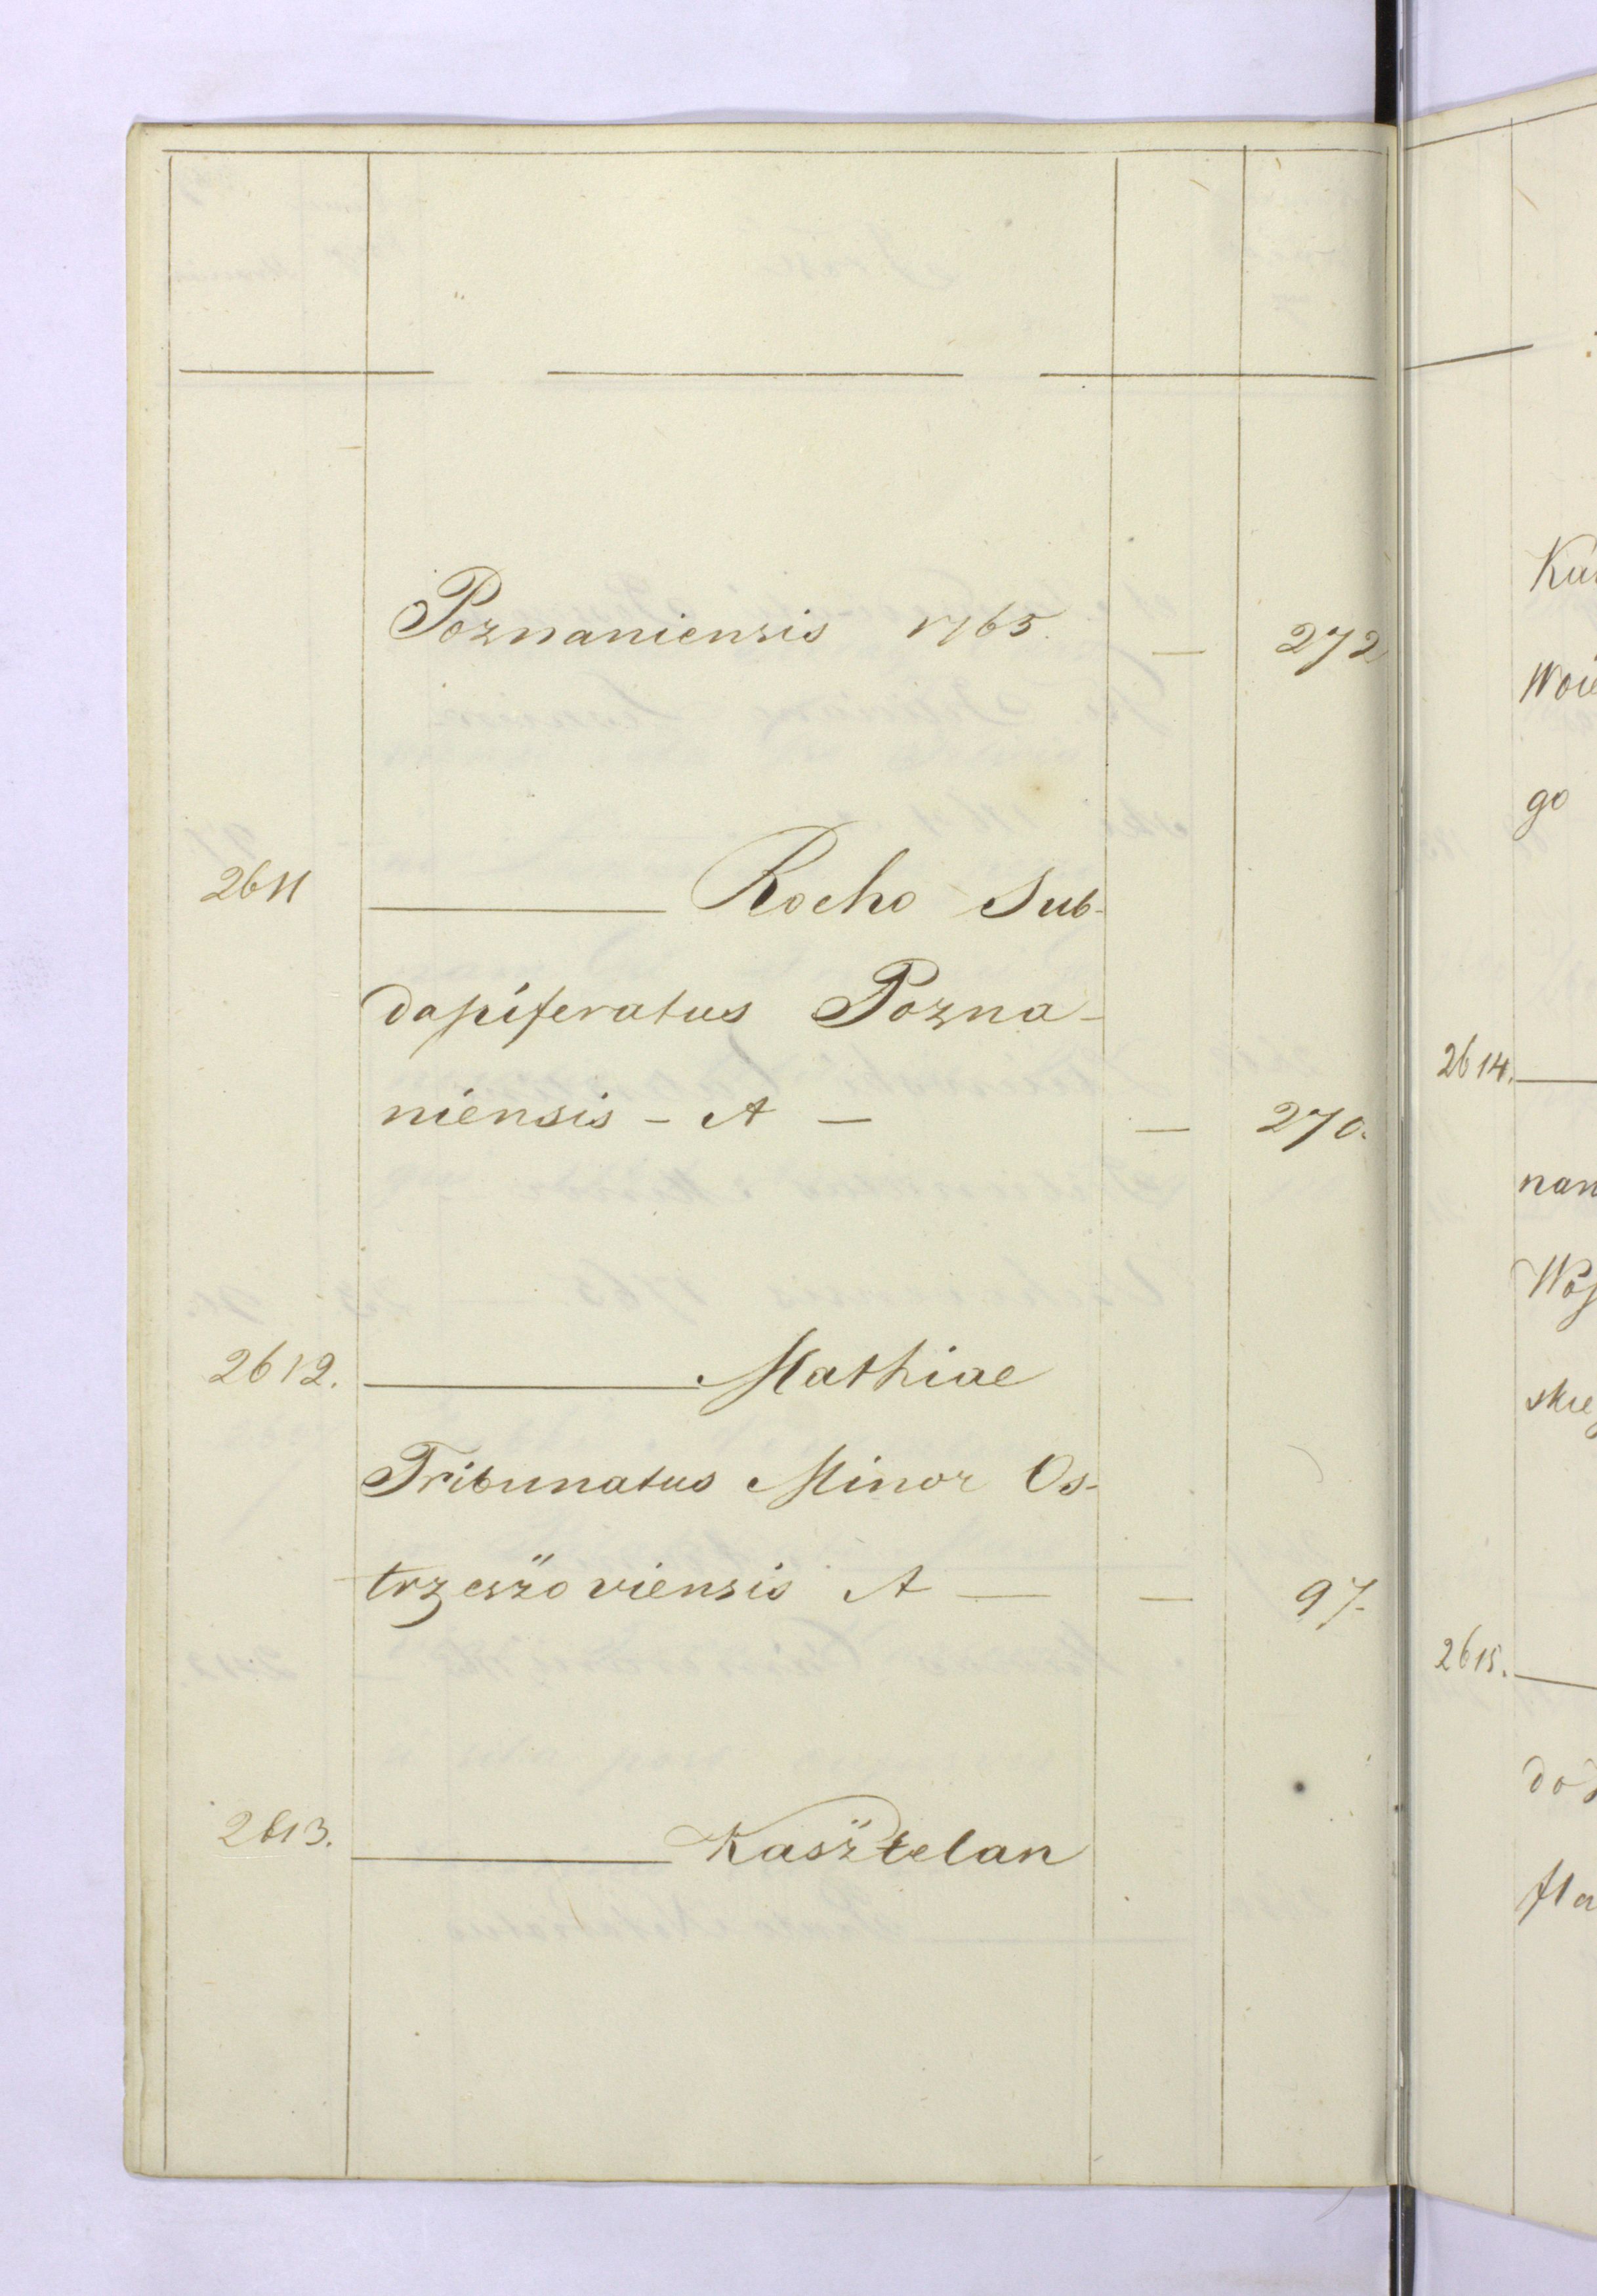 Poznaniensis 1765. — 272
2611 ——— Rocho Sub-
dapiferatus Pozna-
niensis - A — — 270.
2612. ——— Mathiae
Tribunatus Minor Os-
trzeszoviensis A — — 97.
2613. ——— Kasztelan
Woie
go
2614. ———
nan
2615. ———